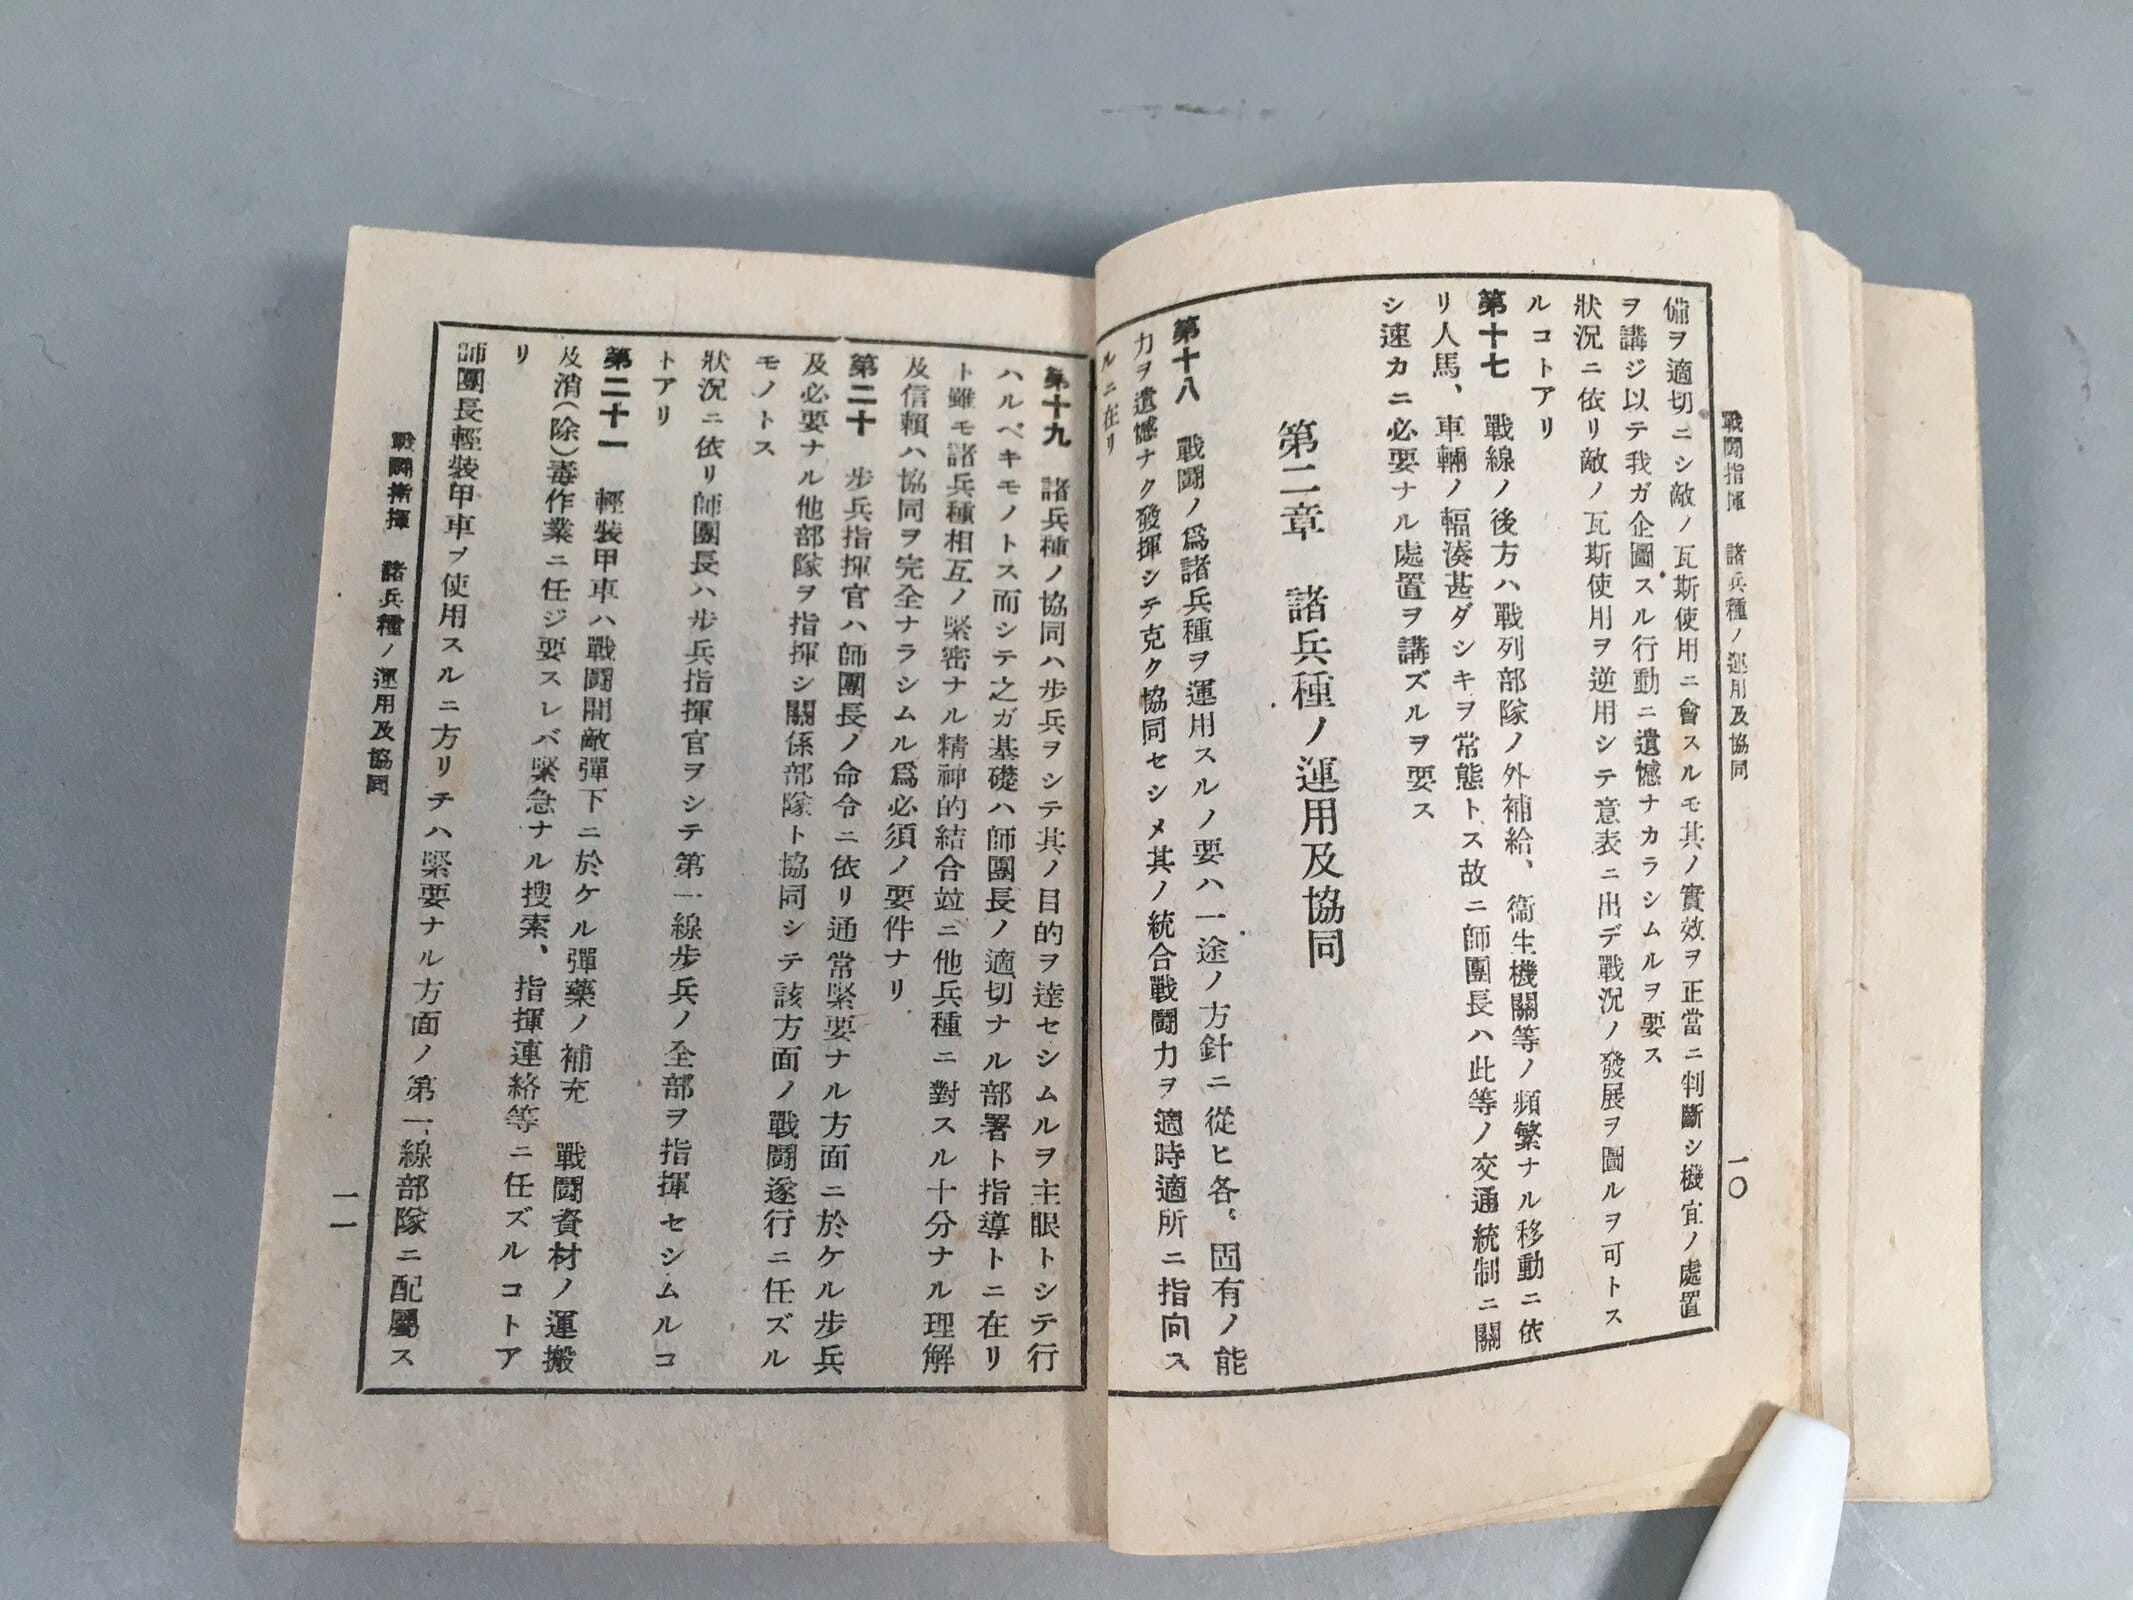 戰鬪指揮　諸兵種ノ運用及協同
一〇
備ヲ適切ニシ敵ノ瓦斯使用ニ會スルモ其ノ實效ヲ正當ニ判斷シ機宜ノ處置
ヲ講ジ以テ我ガ企圖スル行動ニ遺憾ナカラシムルヲ要ス
狀況ニ依リ敵ノ瓦斯使用ヲ逆用シテ意表ニ出デ戰況ノ發展ヲ圖ルヲ可トス
ルコトアリ
第十七　戰線ノ後方ハ戰列部隊ノ外補給、衞生機關等ノ頻繁ナル移動ニ依
リ人馬、車輛ノ輻湊甚ダシキヲ常態トス故ニ師團長ハ此等ノ交通統制ニ關
シ速カニ必要ナル處置ヲ講ズルヲ要ス
第二章　諸兵種ノ運用及協同
第十八　戰鬪ノ爲諸兵種ヲ運用スルノ要ハ一途ノ方針ニ從ヒ各〻固有ノ能
力ヲ遺憾ナク發揮シテ克ク協同セシメ其ノ統合戰鬪力ヲ適時適所ニ指向ス
ルニ在リ
第十九　諸兵種ノ協同ハ步兵ヲシテ其ノ目的ヲ達セシムルヲ主眼トシテ行
ハルベキモノトス而シテ之ガ基礎ハ師團長ノ適切ナル部署ト指導トニ在リ
ト雖モ諸兵種相互ノ緊密ナル精神的結合竝ニ他兵種ニ對スル十分ナル理解
及信賴ハ協同ヲ完全ナラシムル爲必須ノ要件ナリ
第二十　步兵指揮官ハ師團長ノ命令ニ依リ通常緊要ナル方面ニ於ケル步兵
及必要ナル他部隊ヲ指揮シ關係部隊ト協同シテ該方面ノ戰鬪遂行ニ任ズル
モノトス
狀況ニ依リ師團長ハ步兵指揮官ヲシテ第一線步兵ノ全部ヲ指揮セシムルコ
トアリ
第二十一　輕裝甲車ハ戰鬪間敵彈下ニ於ケル彈藥ノ補充　戰鬪資材ノ運搬
及消(除)毒作業ニ任ジ要スレバ緊急ナル搜索、指揮連絡等ニ任ズルコトア
リ
師團長輕裝甲車ヲ使用スルニ方リテハ緊要ナル方面ノ第一線部隊ニ配屬ス
戰鬪指揮　諸兵種ノ運用及協同
一一